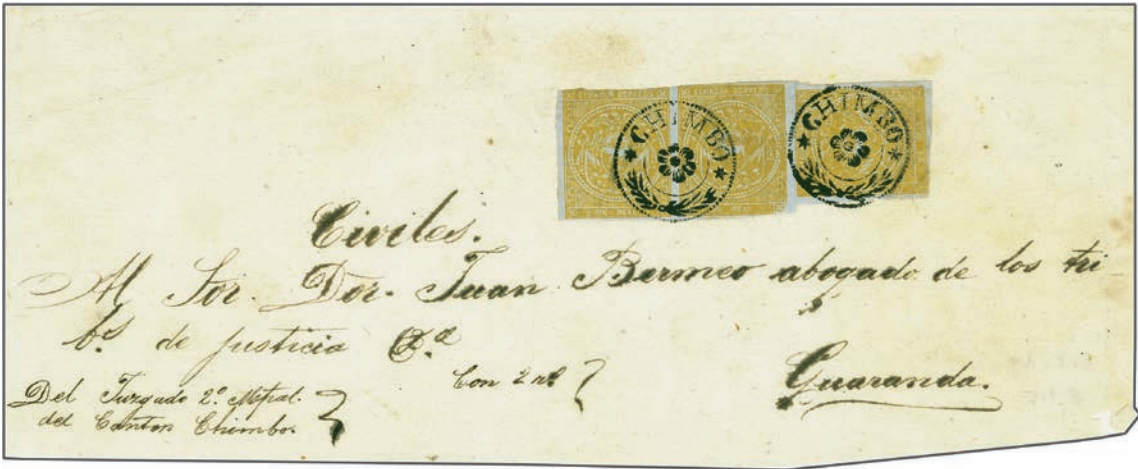 ★ CHIMBO ★
★ CHIMBO ★
Civiles.
Al Sor. Dor. Juan Bermeo abogado de los tri
bs de justicia &a
Con 2 rs
Guaranda.
Del Juzgado 2º Mpal.
del Canton Chimbo.